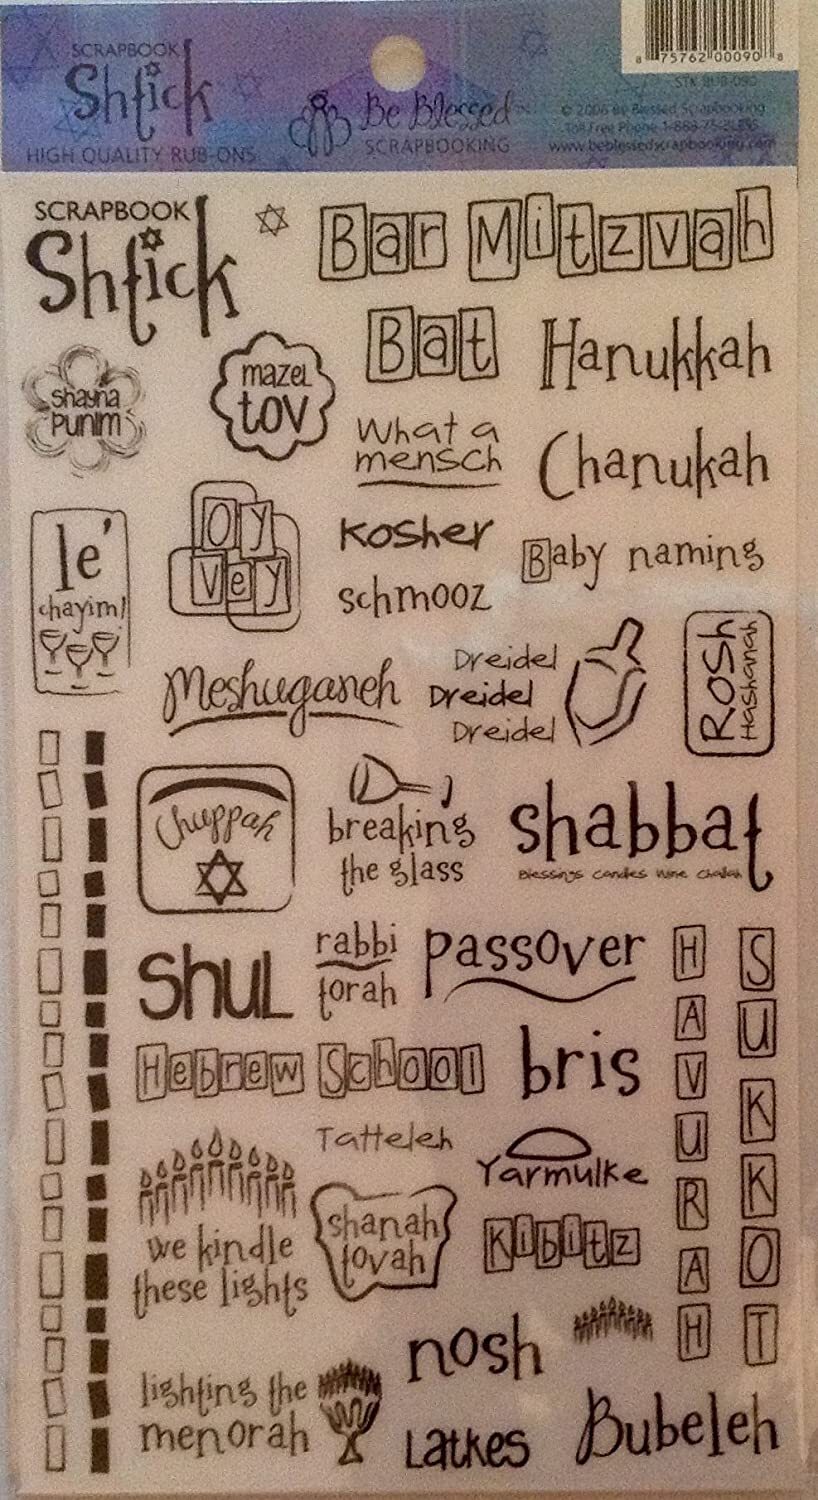 SCRAPBOOK
Shtick
HIGH QUALITY RUB-ONS
Be Blessed
SCRAPBOOKING
8 75762 00090 8
STK-RUB-090
© 2006 Be Blessed Scrapbooking
Toll Free Phone 1-888-75-BLESS
www.beblessedscrapbooking.com
SCRAPBOOK
Shtick
Bar Mitzvah
Bat
Hanukkah
shayna
punim
mazel
tov
What a
mensch
Chanukah
le'
chayim!
Oy
Vey
Kosher
schmooz
Baby naming
Meshuganeh
Dreidel
Dreidel
Dreidel
Rosh
Hashanah
Chuppah
breaking
the glass
shabbat
Blessings Candles Wine Challah
shul
rabbi
torah
passover
HAVURAH
SUKKOT
Hebrew School
bris
Tatteleh
Yarmulke
we kindle
these lights
shanah
tovah
Kibitz
nosh
lighting the
menorah
Latkes
Bubeleh